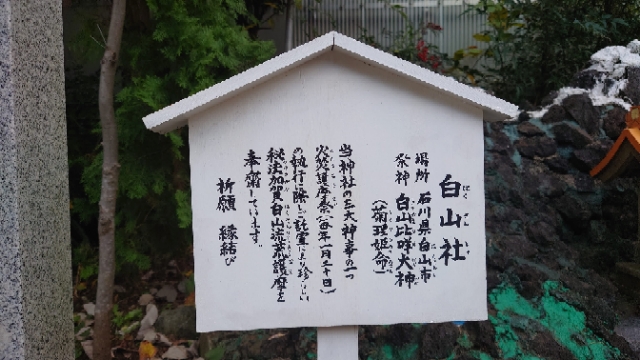 白山社
場所 石川県白山市
祭神 白山比咩大神
(菊理姫命)
当神社の三大神事の一つ
火祭護摩祭(毎年一月三十日)
の執行に際し、託宣により珍らしい
秘法加賀白山荒荒護摩を
奉齋しています。
祈願 縁結び